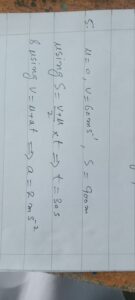 5. u=0, v=60ms⁻¹, s=900m
using s = (v+u)/2 x t ⇒ t = 30s
& using v=u+at ⇒ a=2ms⁻²